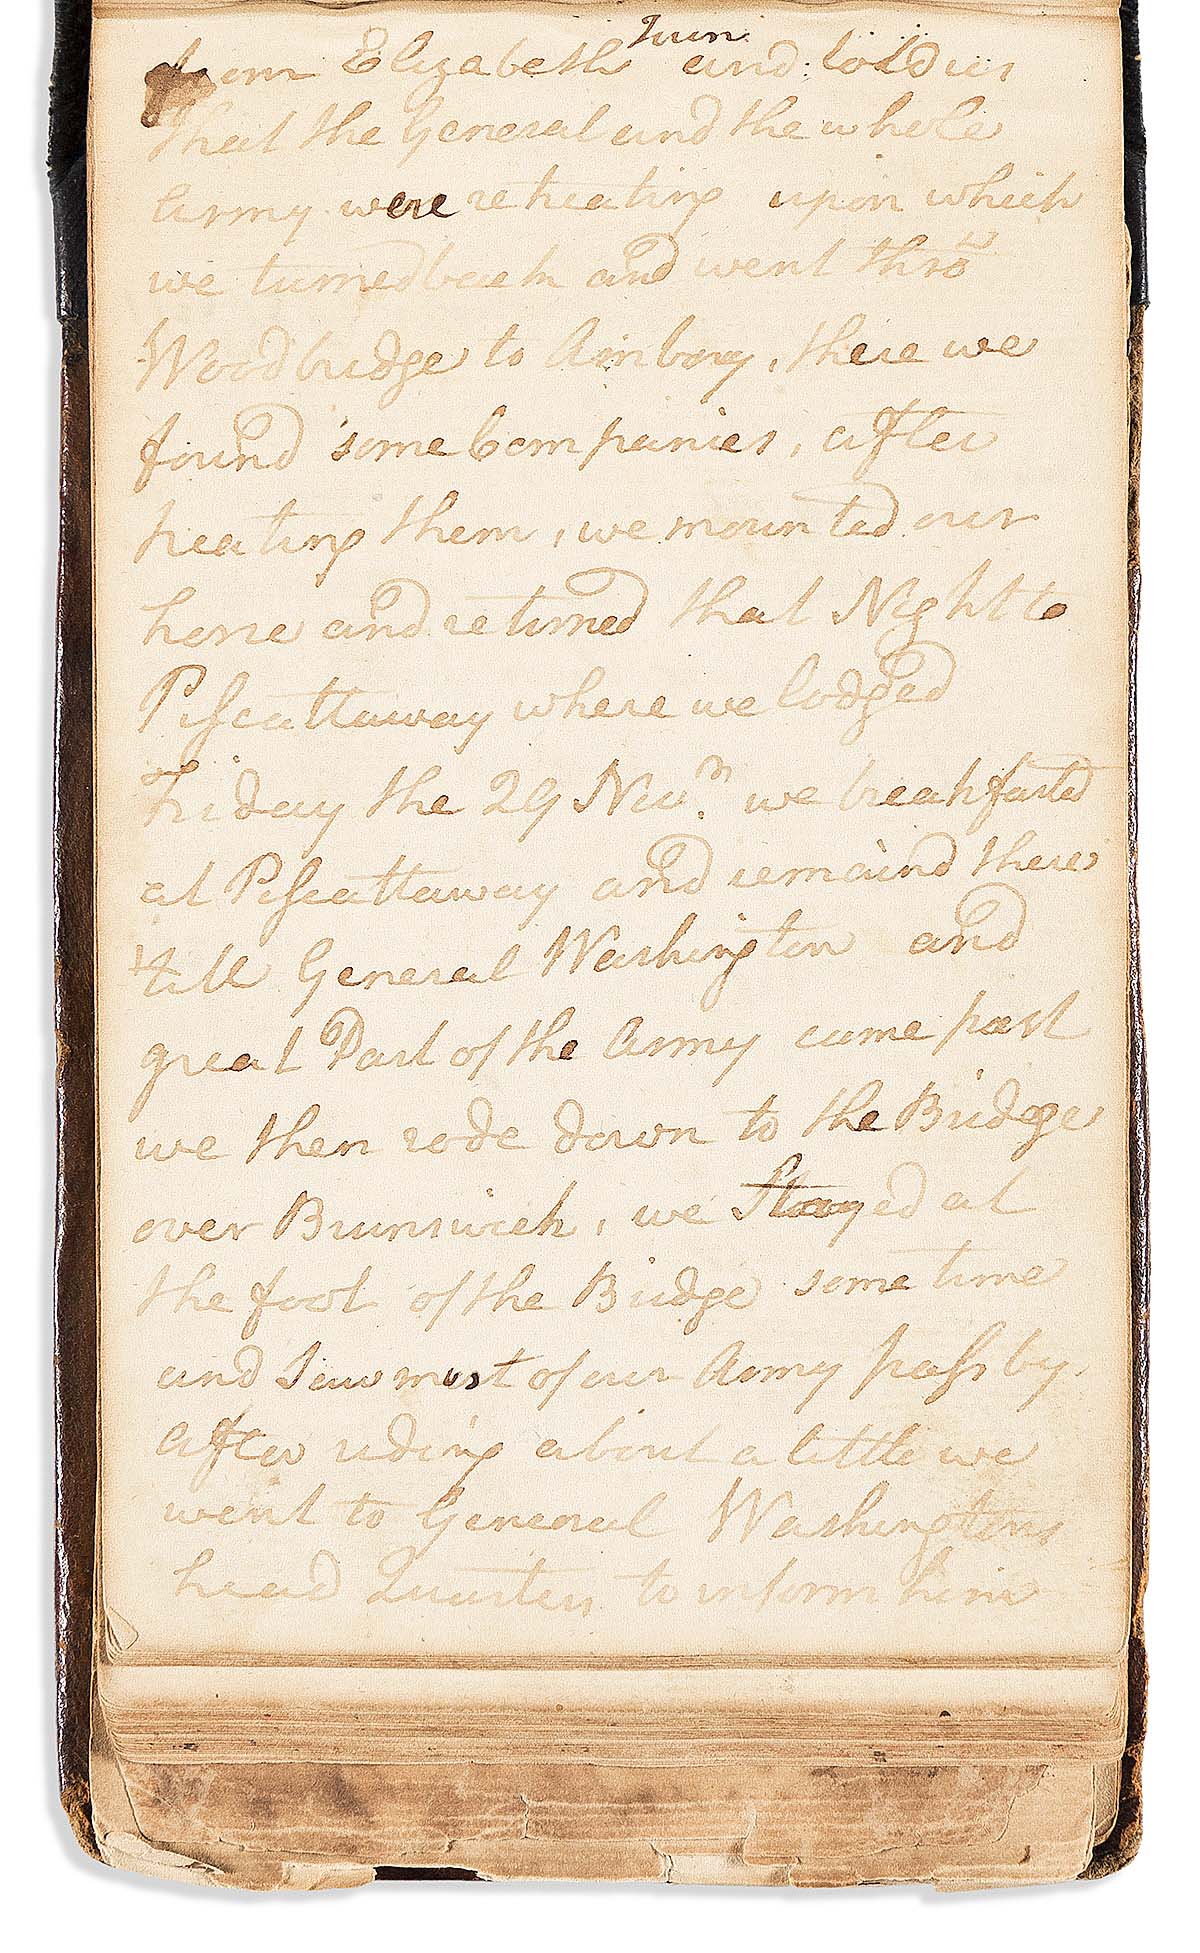 from Elizabeth Town and told us
that the General and the whole
Army were retreating upon which
we turned back and went thro
Woodbridge to Amboy, there we
found some Companies, after
treating them, we mounted our
horse and returned that Night to
Piscattaway where we lodged
Friday the 29 Novr. we breakfasted
at Piscattaway and remaind there
'till General Washington and
great Part of the Army came past
we then rode down to the Bridge
over Brunswick, we Stayed at
the foot of the Bridge some time
and Saw most of our Army pass by.
after riding about a little we
went to General Washingtons
head Quarters to inform him